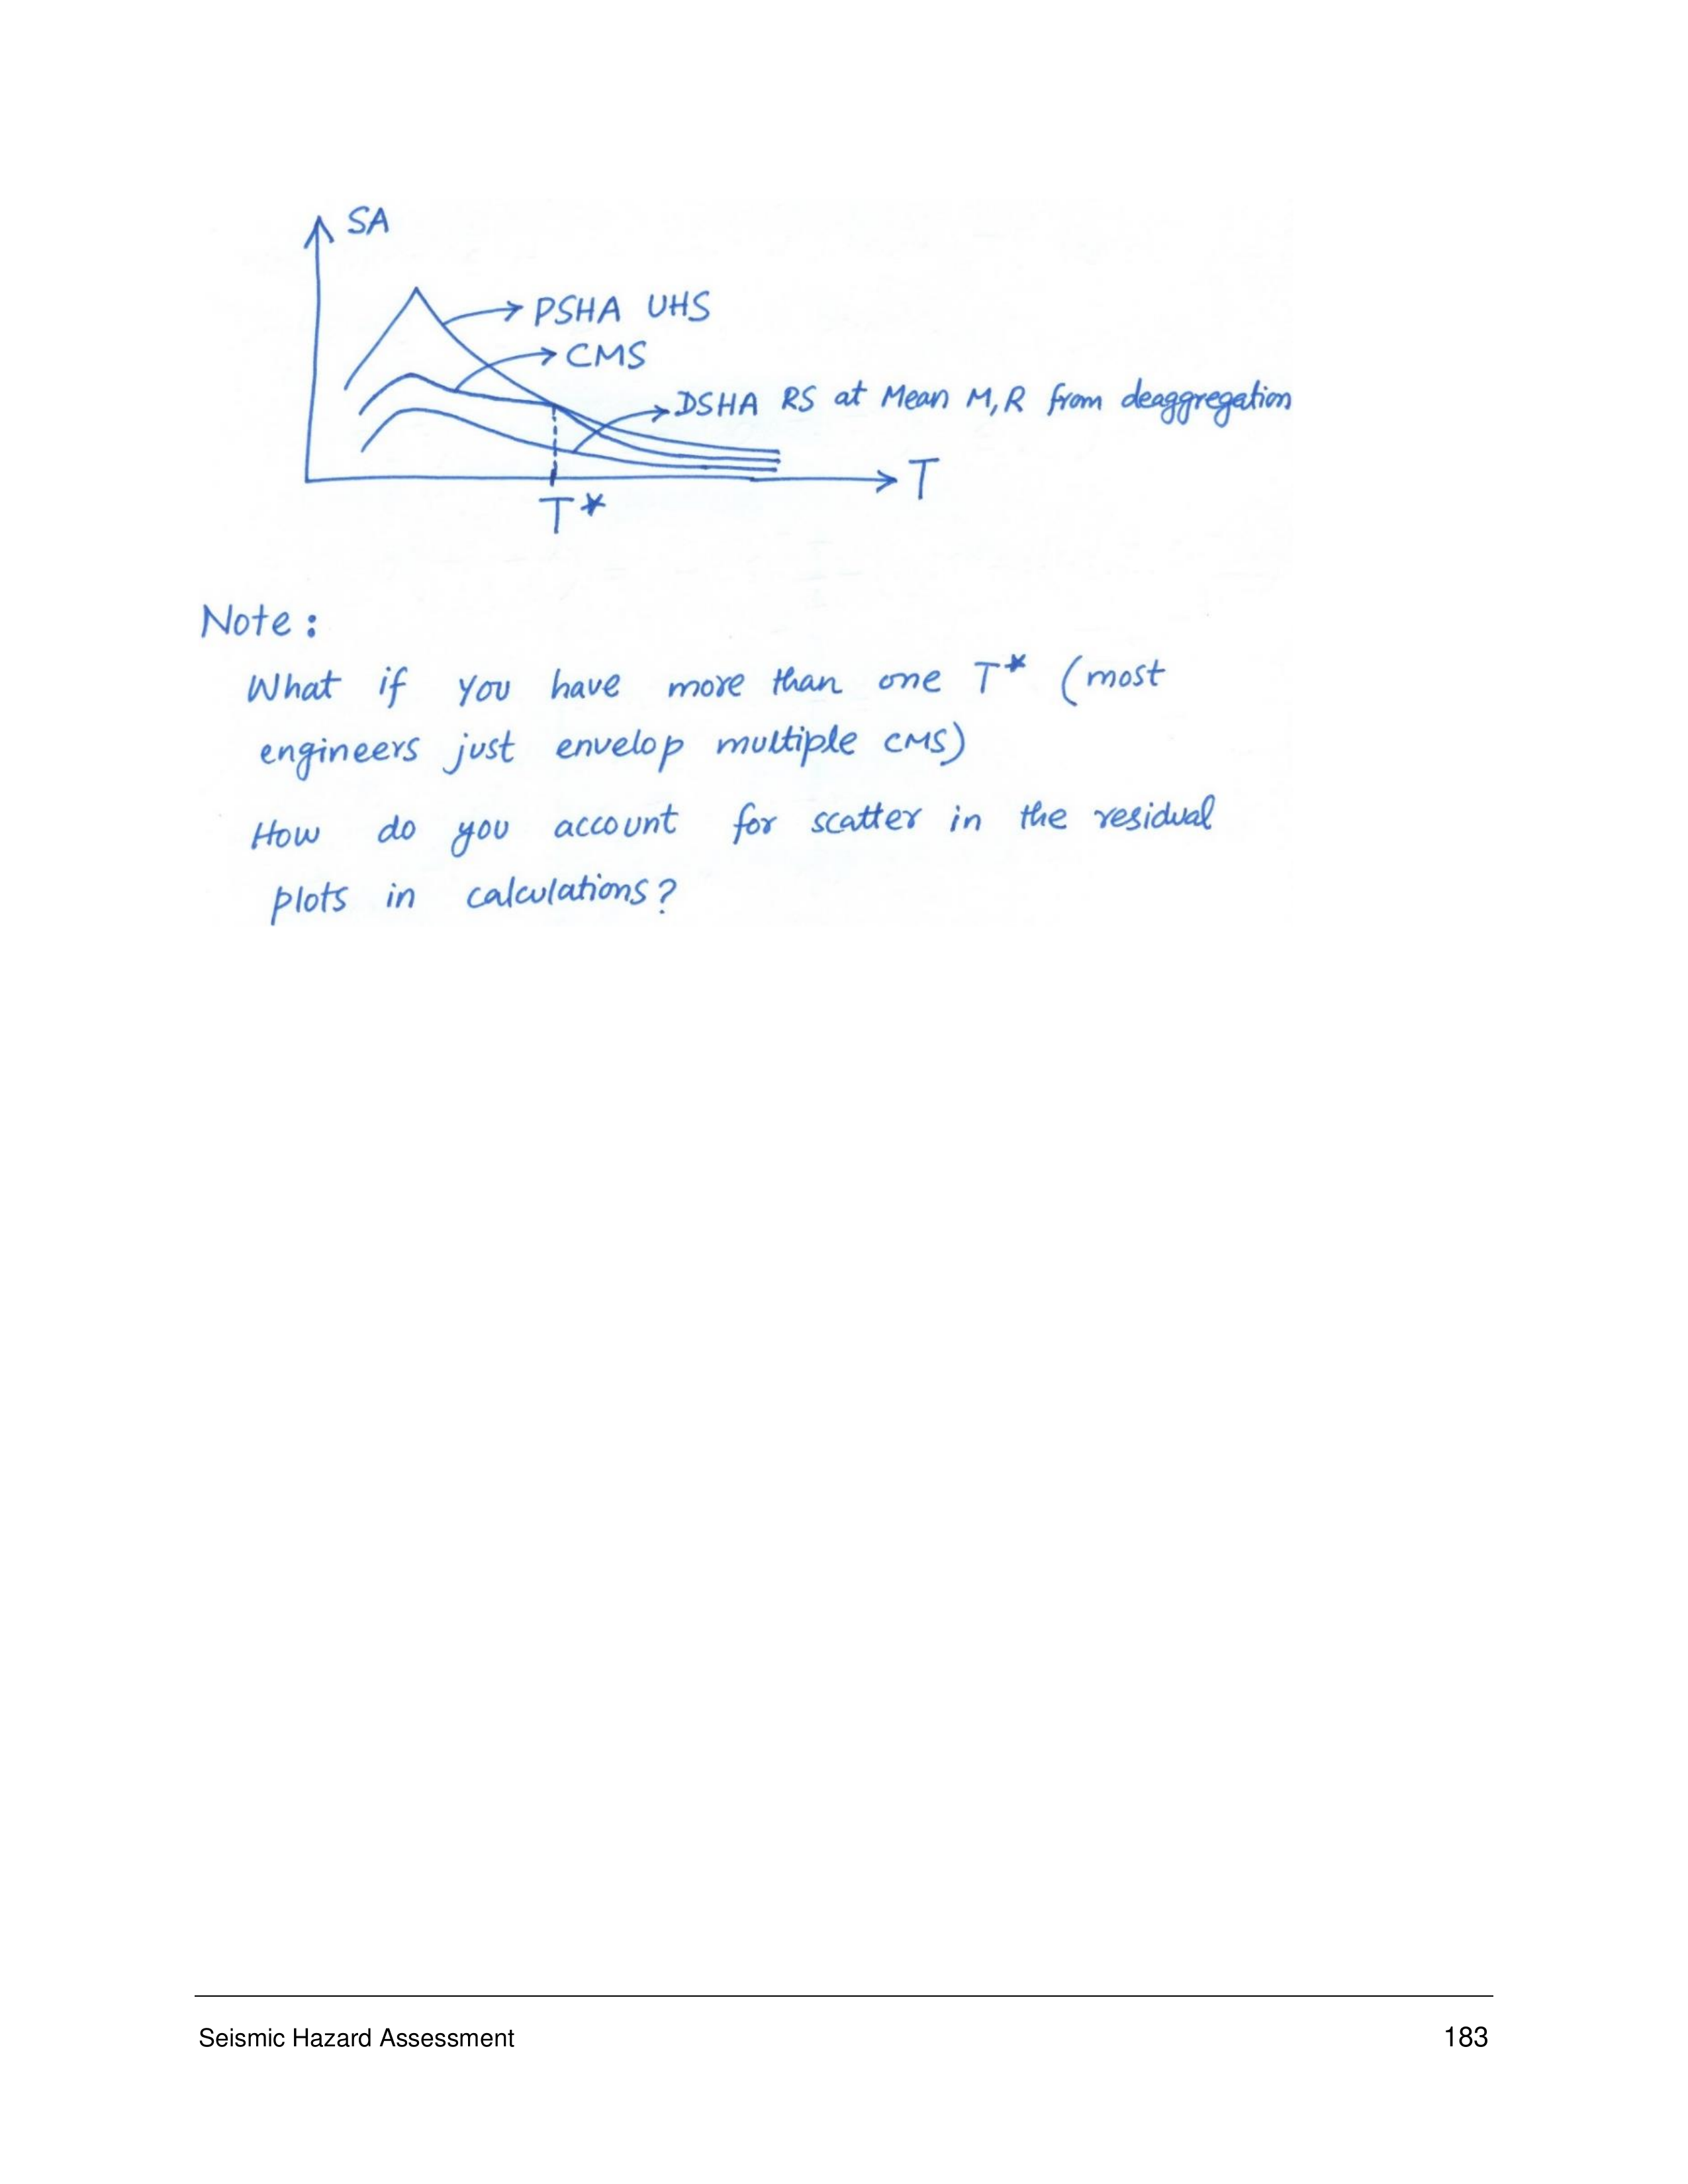 SA
PSHA UHS
CMS
DSHA RS at Mean M,R from deaggregation
T
T*
Note:
What if you have more than one T* (most
engineers just envelop multiple CMS)
How do you account for scatter in the residual
plots in calculations?
Seismic Hazard Assessment 183